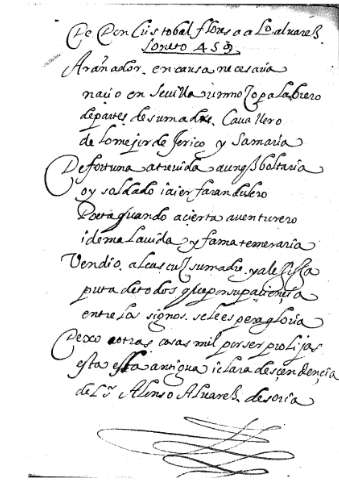 De Don Cristobal flores a Aº aluarez
Soneto 459
Arañador. en causa necesaria
naçio en Seuilla un moço palabrero
de partes de su madre Cauallero
de lo mejor de Jerico y Samaria
De fortuna atreuida aunq̃ boltaria
oy soldado i aier farandulero
Poeta quando acierta auenturero
i de mala uida y fama temeraria
Vendio. alcuzcuz su madre. y ale
puta de todos q̃ le por su paciencia
entre los signos. se le espera gloria
Dexo otras cosas mil por ser prolijas
esta es la antigua i clara descendencia
de Lº Alonso Aluarez de soria